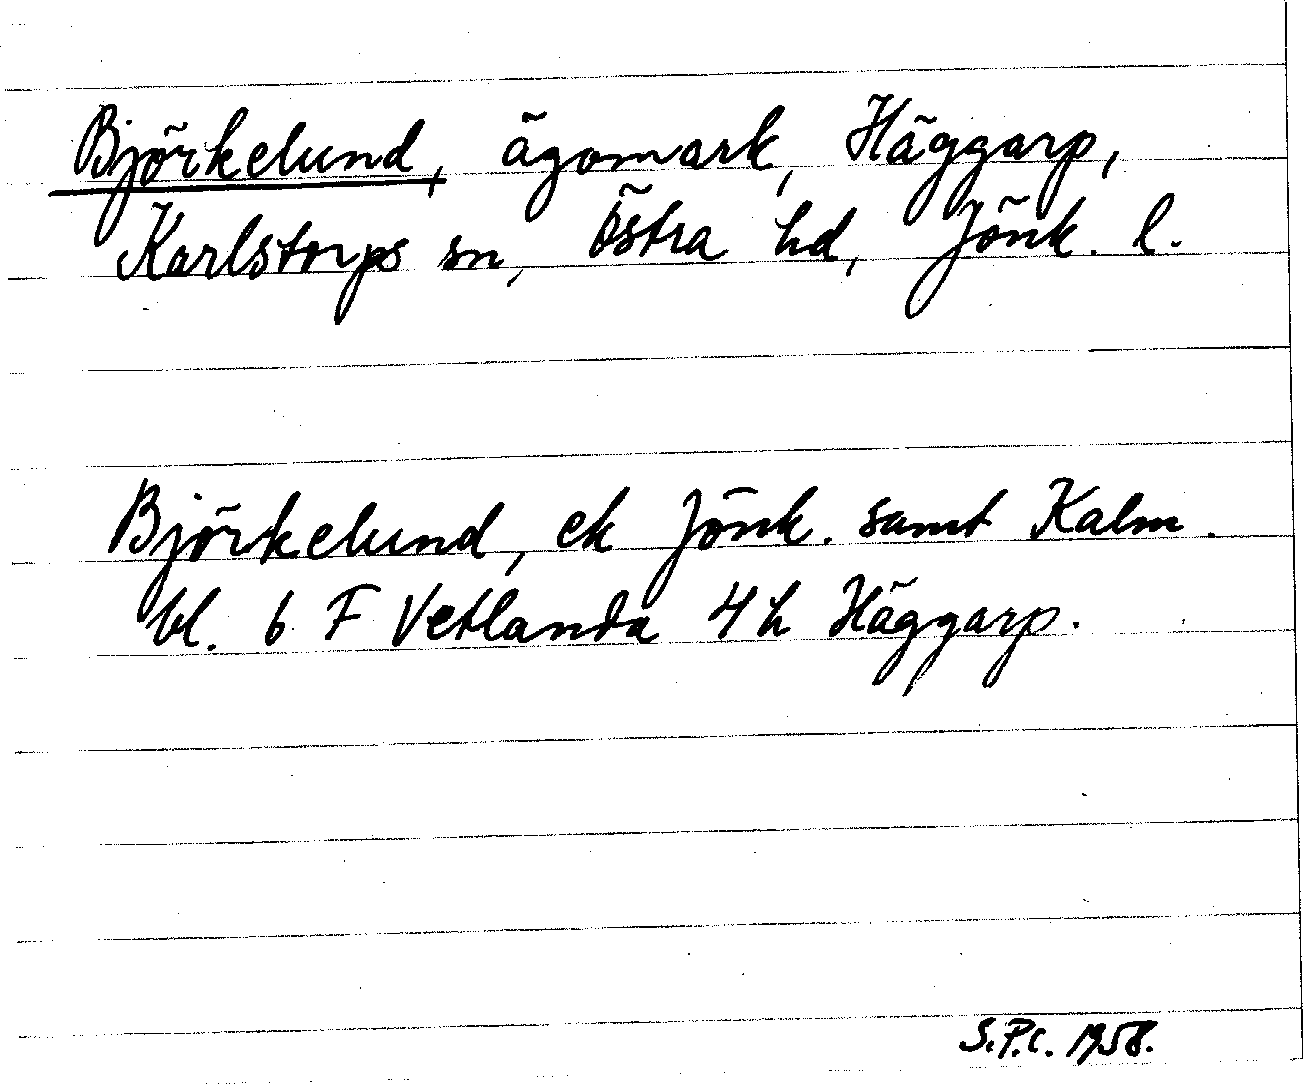 Björkelund, ägomark, Häggarp,
Karlstorps sn, Östra hd, Jönk. l.
Björkelund, ek Jönk. samt Kalm.
bl. 6 F Vetlanda 4h Häggarp.
S.P.C. 1958.